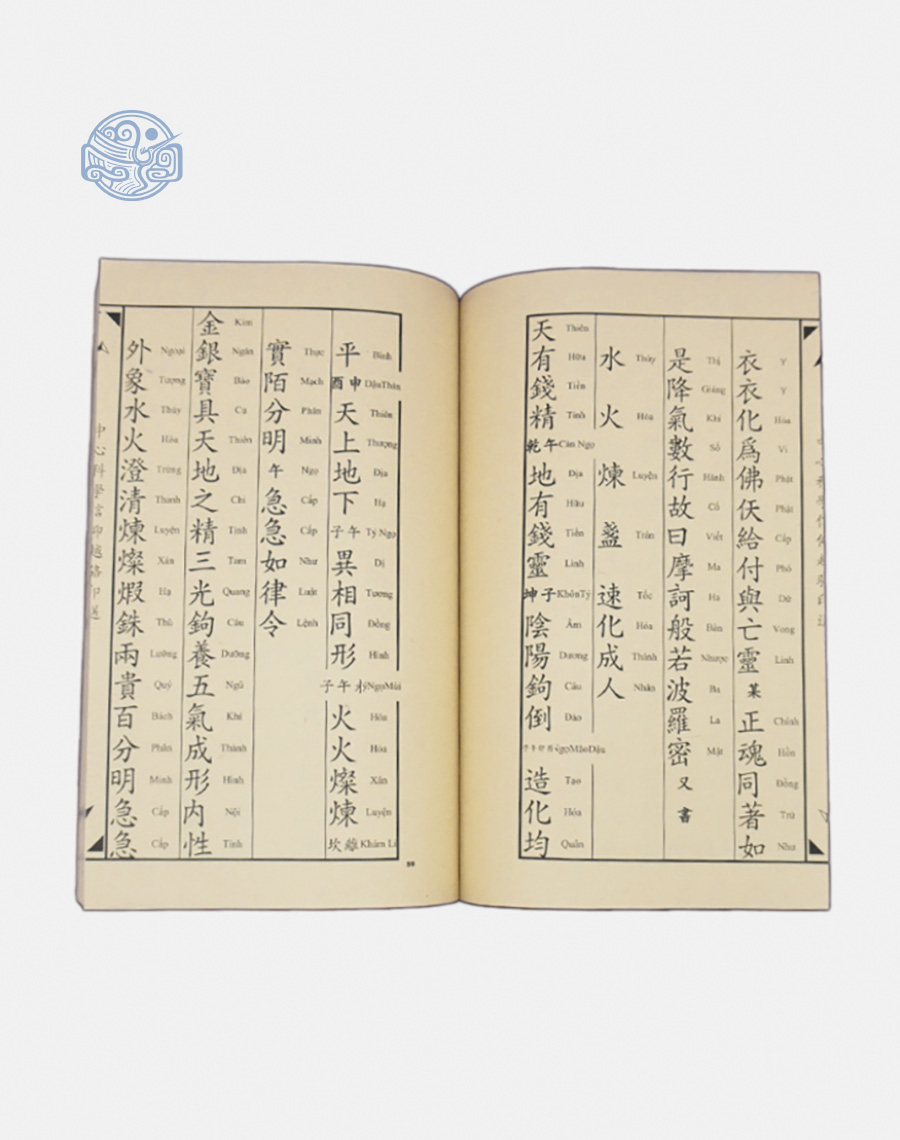 衣衣化爲佛仸給付與亡靈某正魂同著如
Y Y Hóa Vi Phật Phật Cấp Phó Dữ Vong Linh Chính Hồn Đồng Trứ Như
是降氣數行故曰摩訶般若波羅密又書
Thị Giáng Khí Số Hành Cố Viết Ma Ha Bản Nhược Ba La Mật
水火煉盞速化成人
Thủy Hỏa Luyện Trản Tốc Hóa Thành Nhân
天有錢精乾午地有錢靈坤子陰陽鉤倒子午卯酉造化均
Thiên Hữu Tiền Tinh Càn Ngọ Địa Hữu Tiền Linh Khôn Tý Âm Dương Câu Đảo NgọMãoDậu Tạo Hóa Quân
平酉申天上地下子午異相同形子午未火火燦煉坎離
Bình DậuThân Thiên Thượng Địa Hạ Tý Ngọ Dị Tương Đồng Hình NgọMùi Hỏa Hỏa Xán Luyện Khảm Li
實陌分明午急急如律令
Thực Mạch Phân Minh Ngọ Cấp Cấp Như Luật Lệnh
金銀寶具天地之精三光鉤養五氣成形内性
Kim Ngân Bảo Cụ Thiên Địa Chi Tinh Tam Quang Câu Dưỡng Ngũ Khí Thành Hình Nội Tính
外象水火澄清煉燦煆銖兩貴百分明急急
Ngoại Tượng Thủy Hỏa Trừng Thanh Luyện Xán Hạ Thù Lưỡng Quý Bách Phân Minh Cấp Cấp